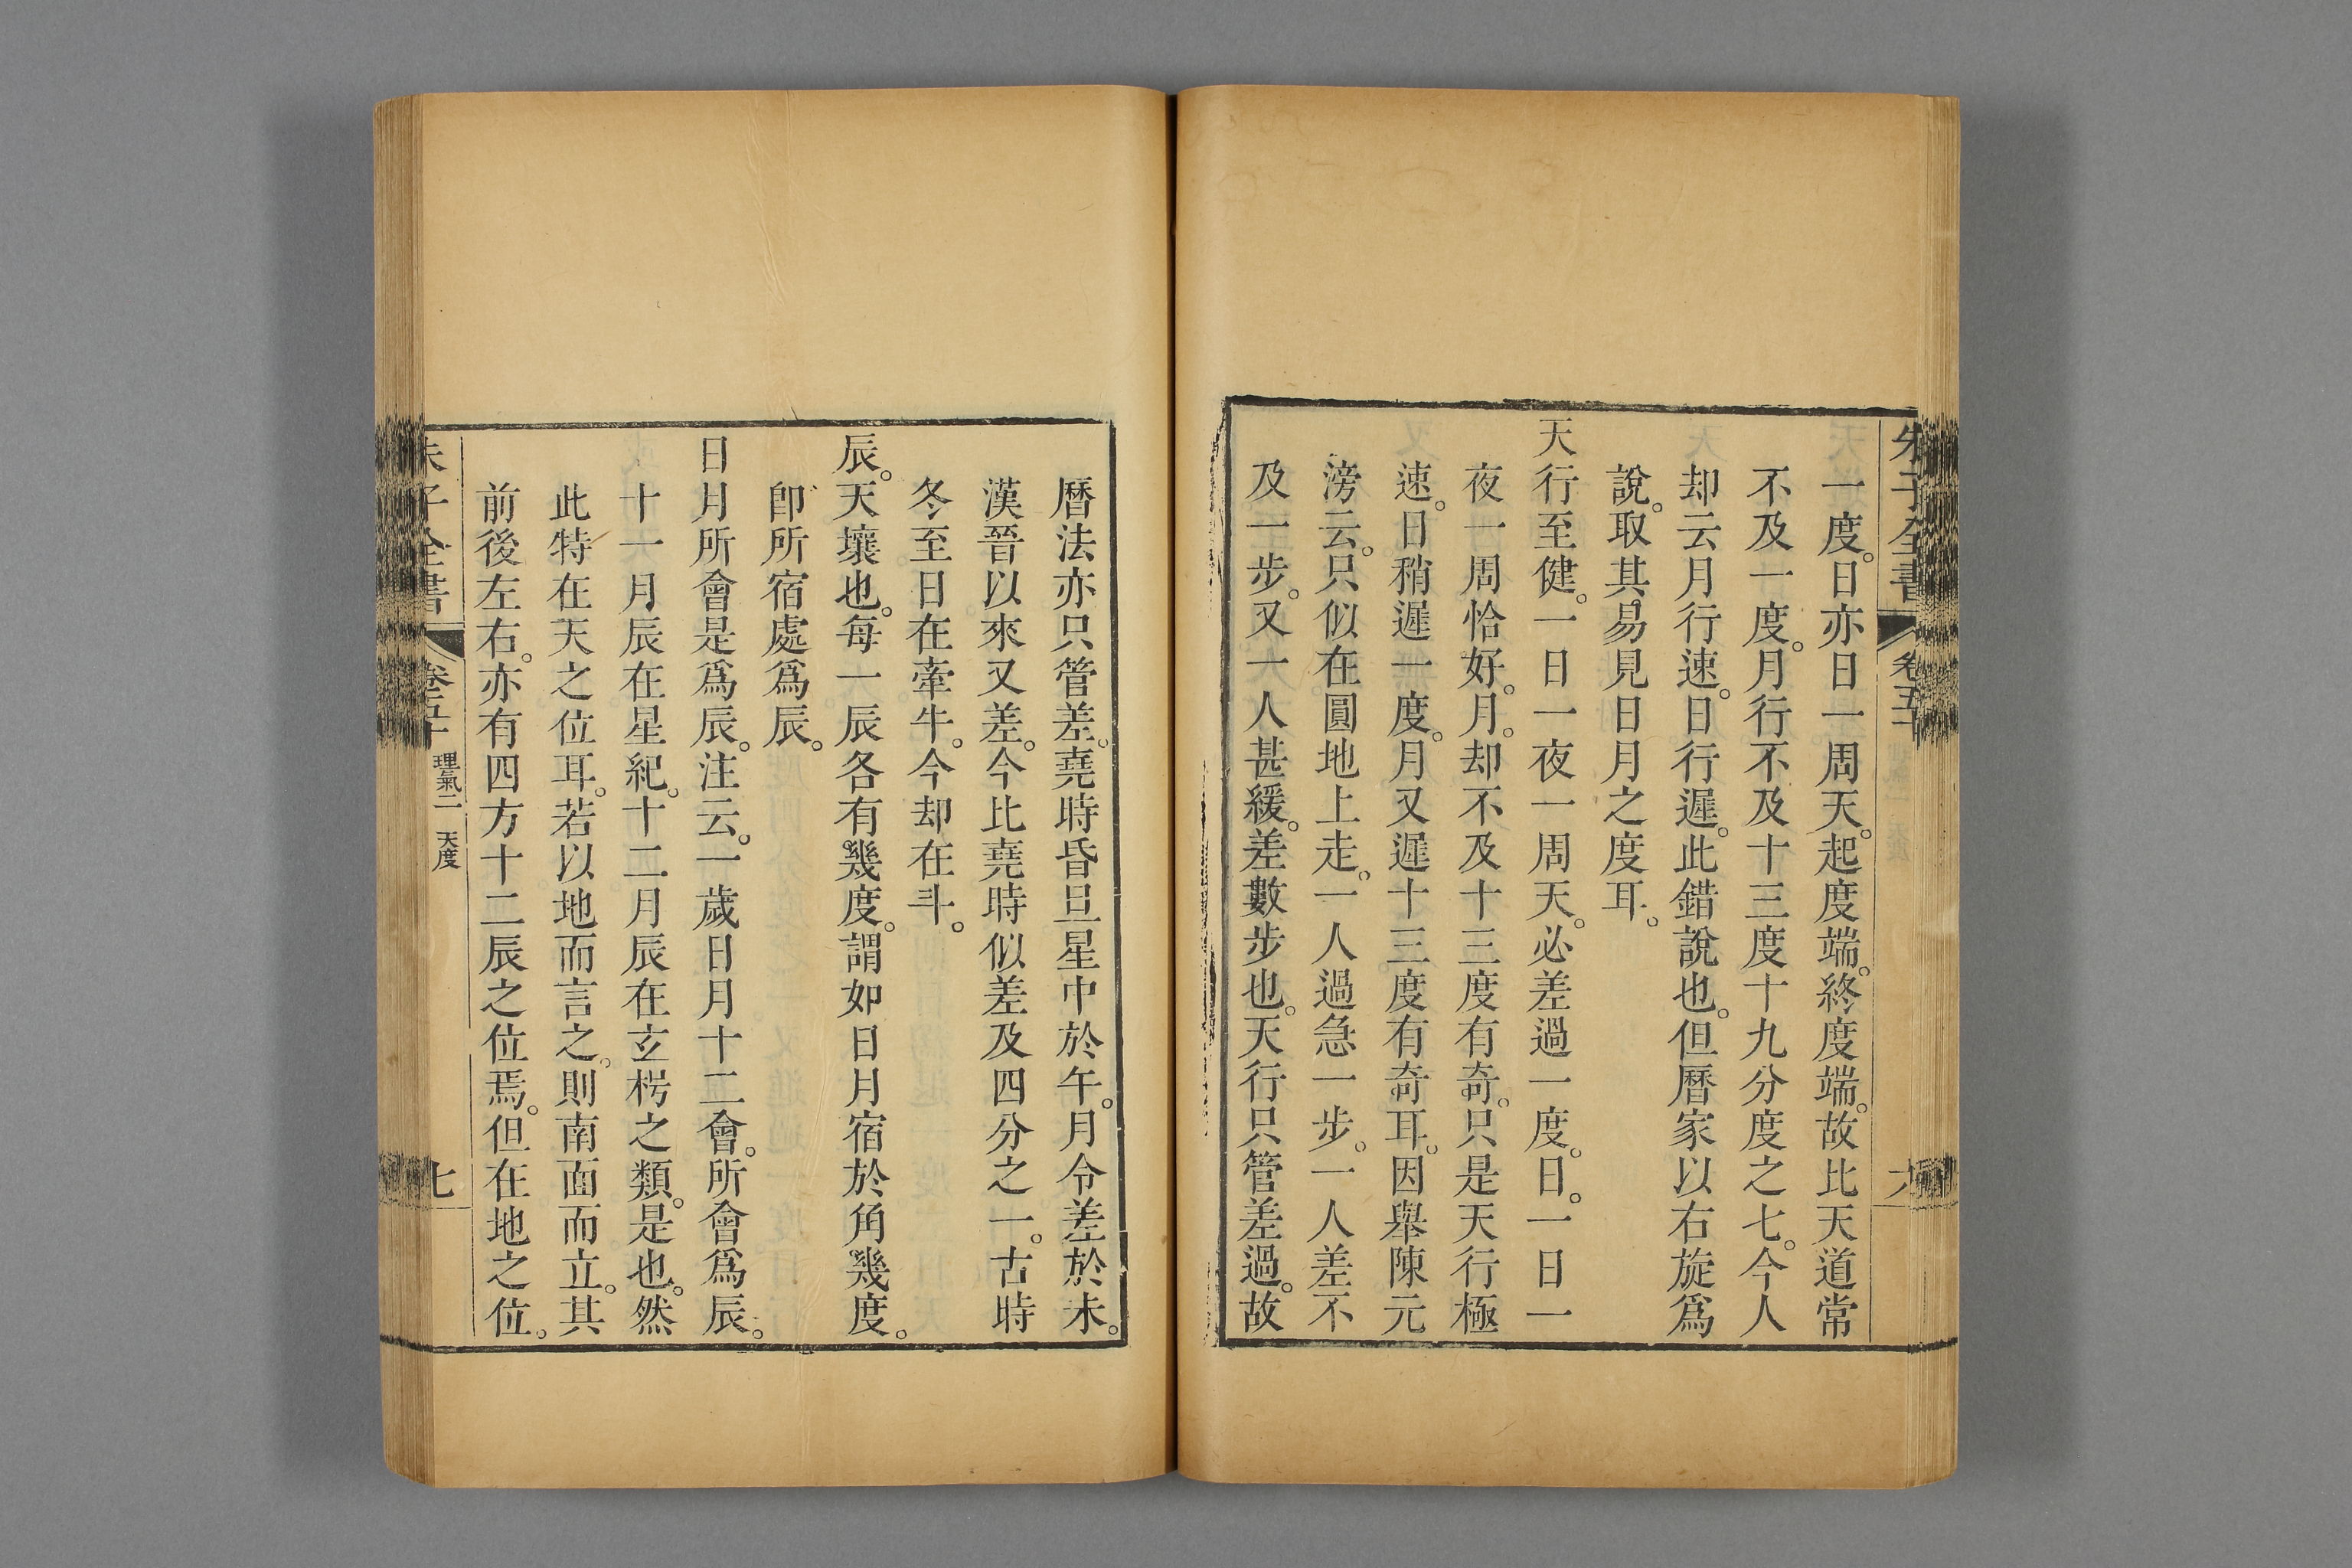 朱子全書 卷五十 六
一度。日亦日一周天。起度端。終度端。故比天道常
不及一度。月行不及十三度十九分度之七。今人
却云月行速。日行遲。此錯說也。但曆家以右旋爲
說。取其易見日月之度耳。
天行至健。一日一夜一周天。必差過一度。日。一日一
夜一周恰好。月。却不及十三度有奇。只是天行極
速。日稍遲一度。月又遲十三度有奇耳。因舉陳元
滂云。只似在圓地上走。一人過急一步。一人差不
及一步。又一人甚緩。差數步也。天行只管差過。故
曆法亦只管差。堯時昏旦星中於午。月令差於未。
漢晉以來又差。今比堯時似差及四分之一。古時
冬至日在牽牛。今却在斗。
辰。天壤也。每一辰各有幾度。謂如日月宿於角幾度。
卽所宿處爲辰。
日月所會是爲辰。注云。一歲日月十二會。所會爲辰。
十一月辰在星紀。十二月辰在玄枵之類。是也。然
此特在天之位耳。若以地而言之。則南面而立。其
前後左右。亦有四方十二辰之位焉。但在地之位。
朱子全書 卷五十 理氣二 天度 七